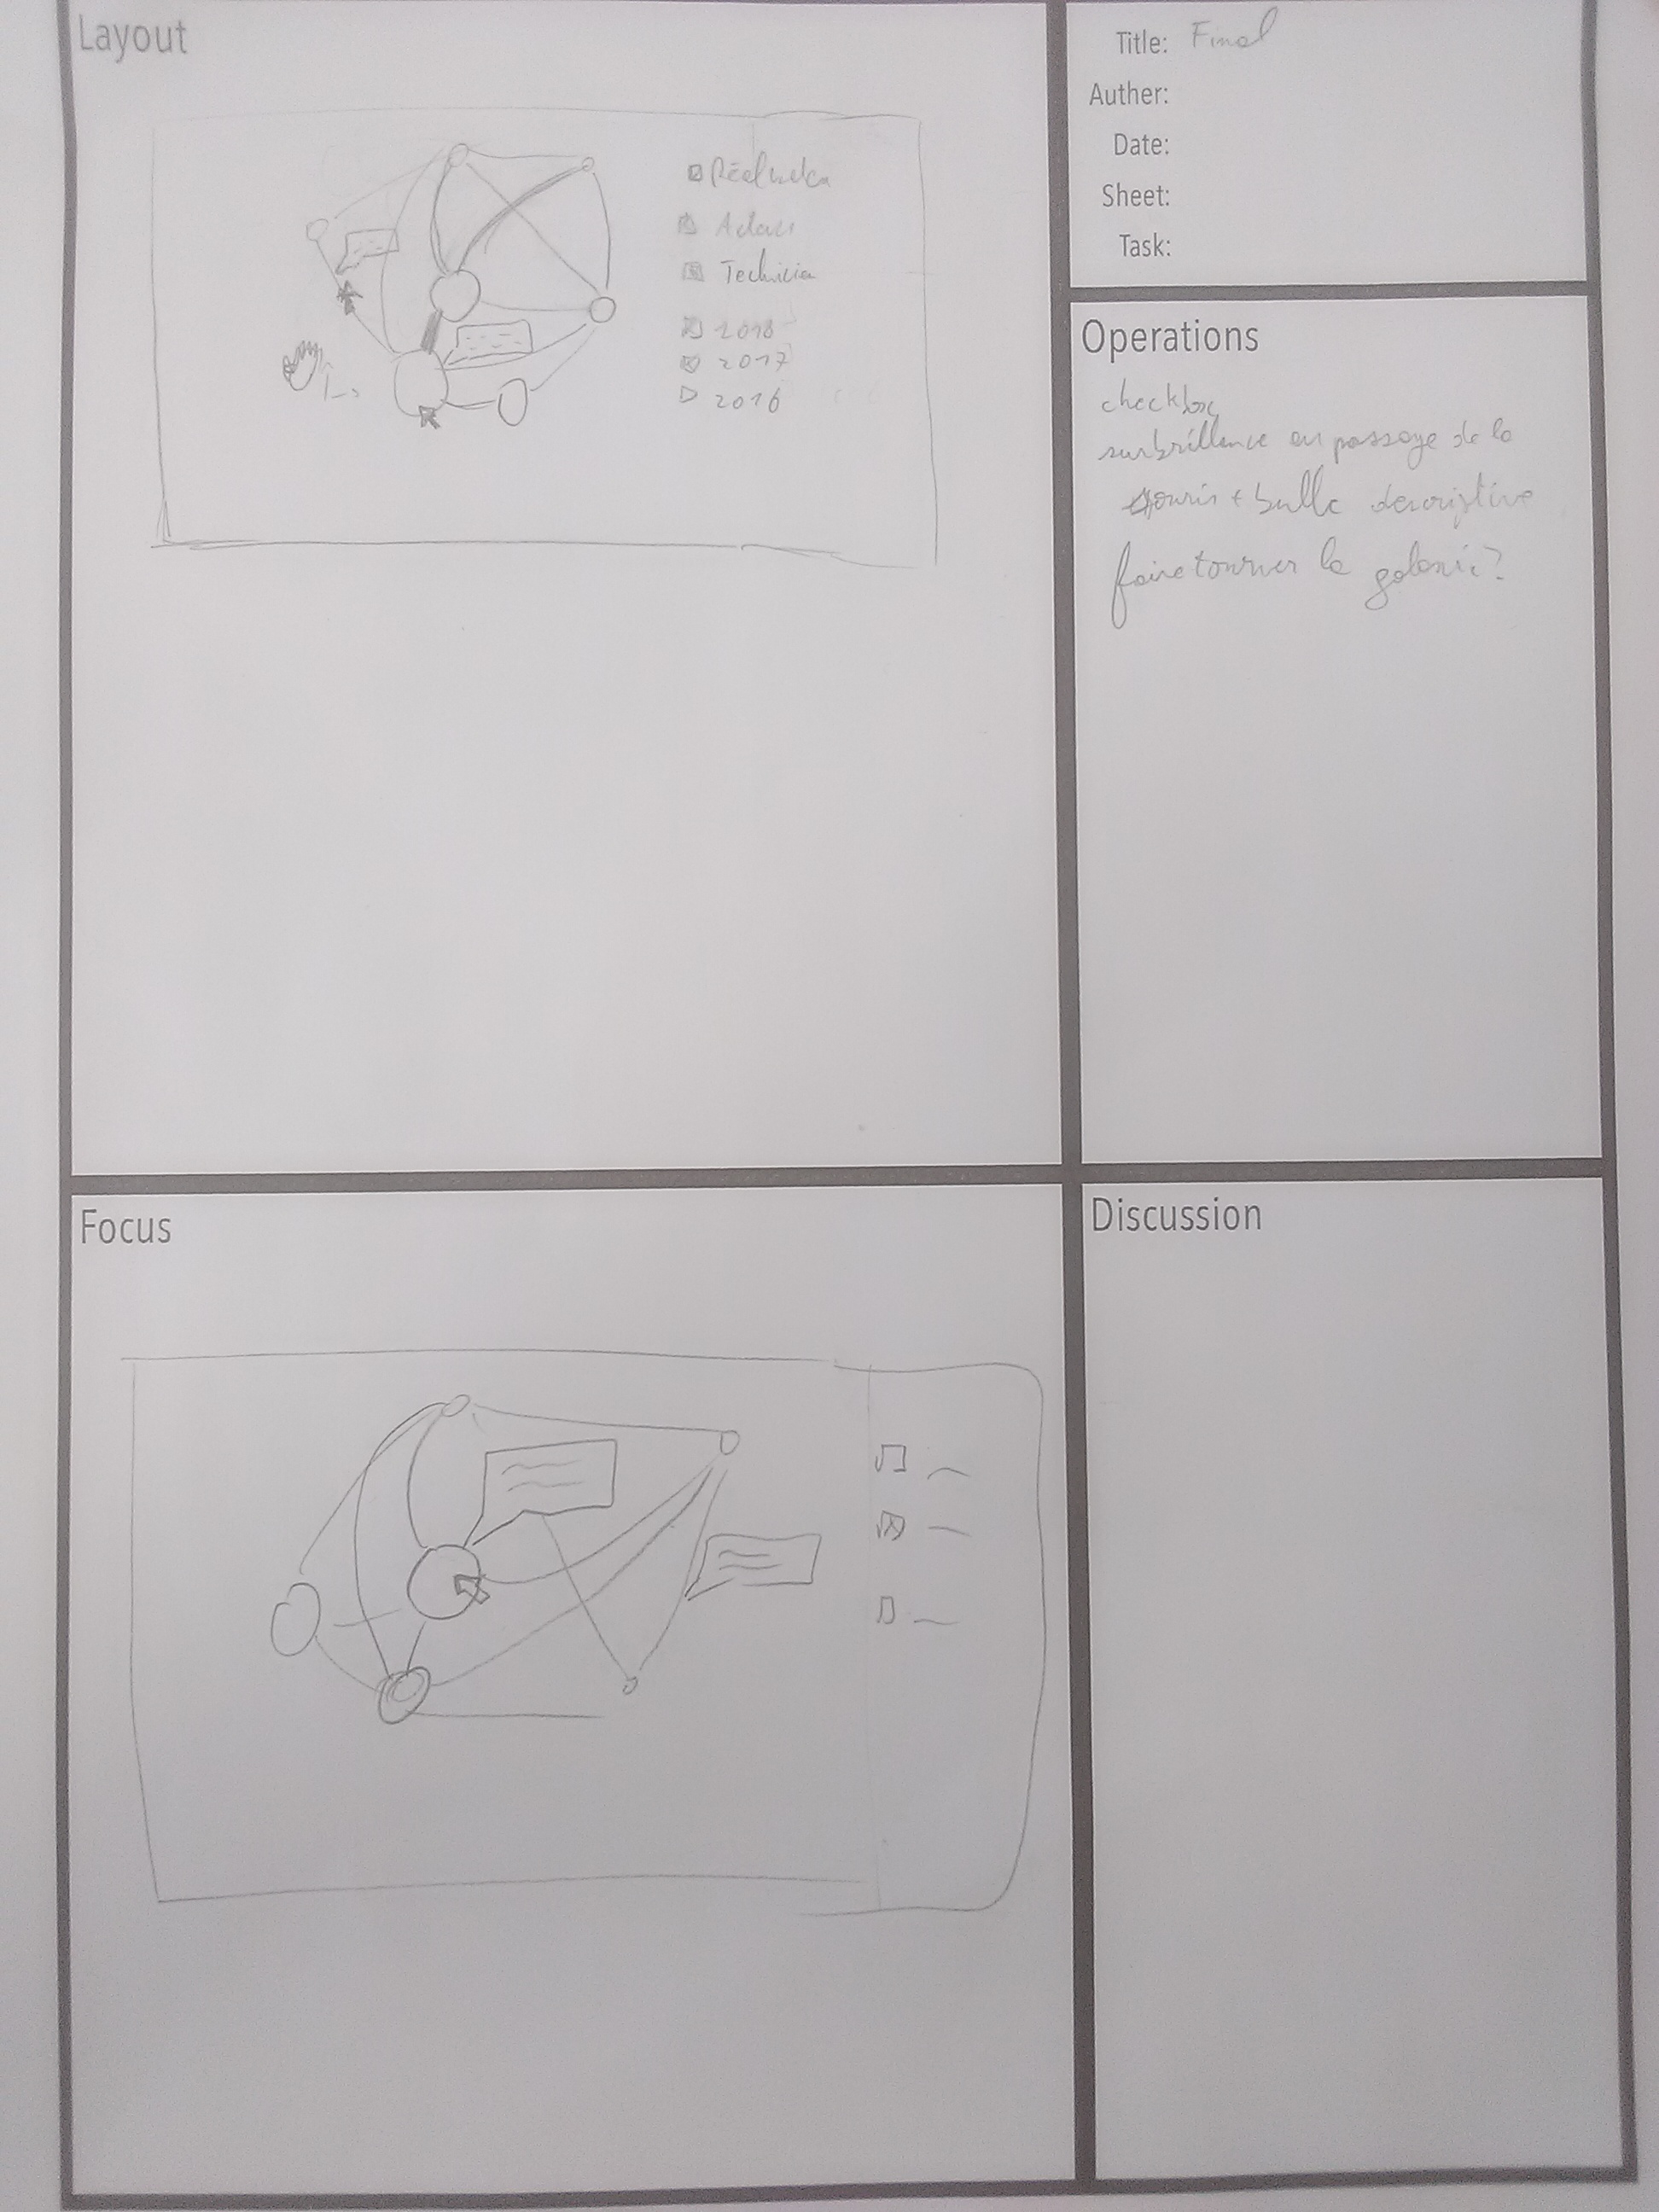 Layout
Réalisateu
Acteurs
Technicien
2018
2017
2016
Title: Final
Auther:
Date:
Sheet:
Task:
Operations
checkbox
surbrillance au passage de la
souris + bulle descriptive
faire tourner la galaxie?
Focus
Discussion